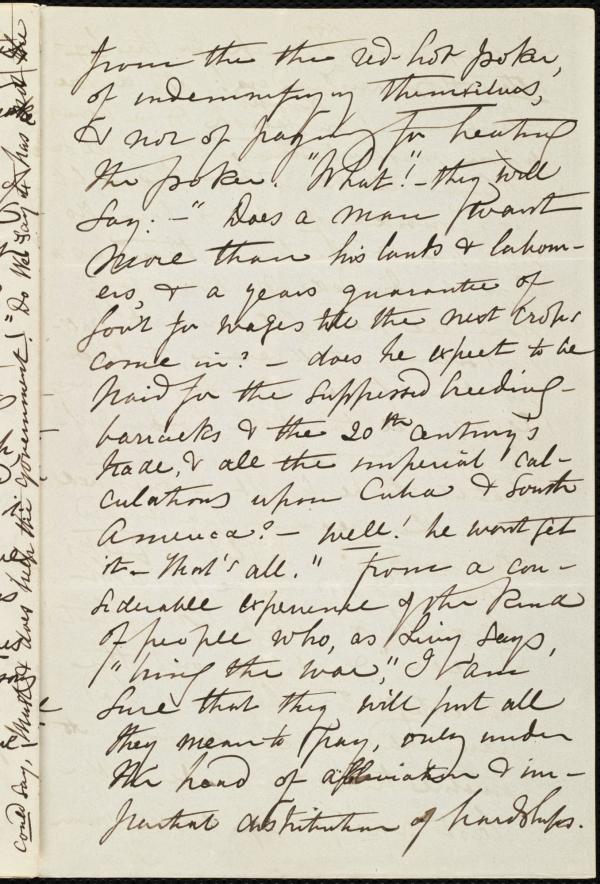 from the the red-hot poker,
of indemnifying themselves,
& not of paying for heating
the poker. "What!" - they will
say: - "Does a man want
more than his lands & labour-
ers, & a years guarantee of
Gov't for wages till the next crops
come in? - does he expect to be
paid for the suppressed breeding-
barracks & the 20th century's
trade, & all the imperial cal-
culations upon Cuba & South
America? - well! he wont get
it - that's all." From a con-
siderable experience of the kind
of people who, as Livy says,
"bring the war," I am
sure that they will put all
they mean to pay, only under
the head of alleviation & im-
partial distribution of hardships.
could say, does help the government!" Do We say it has